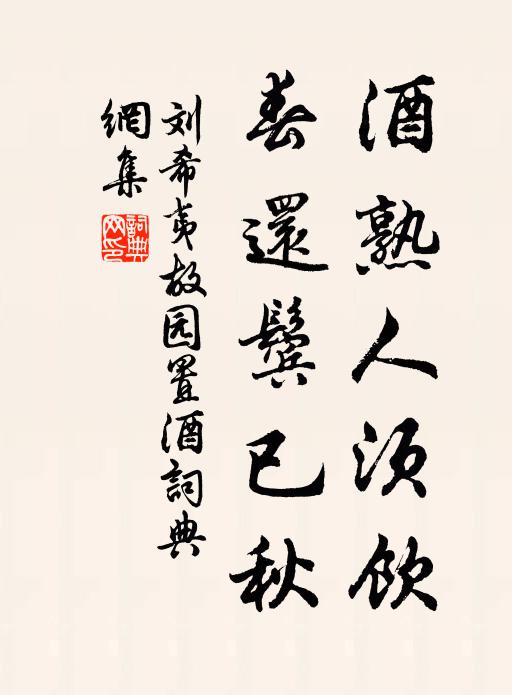 酒熟人须飲
春還鬓已秋
刘希夷故园置酒詞典
網集
詞典網印